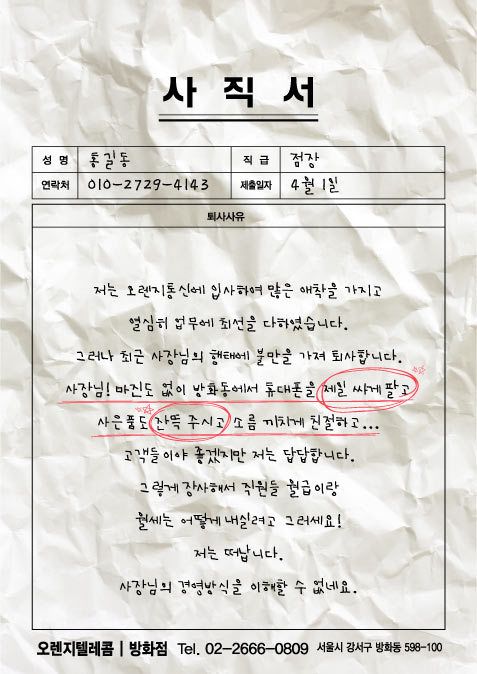 사직서
성 명 홍길동 직 급 점장
연락처 010-2729-4143 제출일자 4월 1일
퇴사사유
저는 오렌지통신에 입사하여 많은 애착을 가지고
열심히 업무에 최선을 다하였습니다.
그러나 최근 사장님의 행태에 불만을 가져 퇴사합니다.
사장님! 마진도 없이 방화동에서 휴대폰을 제일 싸게 팔고
사은품도 잔뜩 주시고 소름 끼치게 친절하고...
고객들이야 좋겠지만 저는 답답합니다.
그렇게 장사해서 직원들 월급이랑
월세는 어떻게 내실려고 그러세요!
저는 떠납니다.
사장님의 경영방식을 이해할 수 없네요.
오렌지텔레콤 | 방화점 Tel. 02-2666-0809 서울시 강서구 방화동 598-100